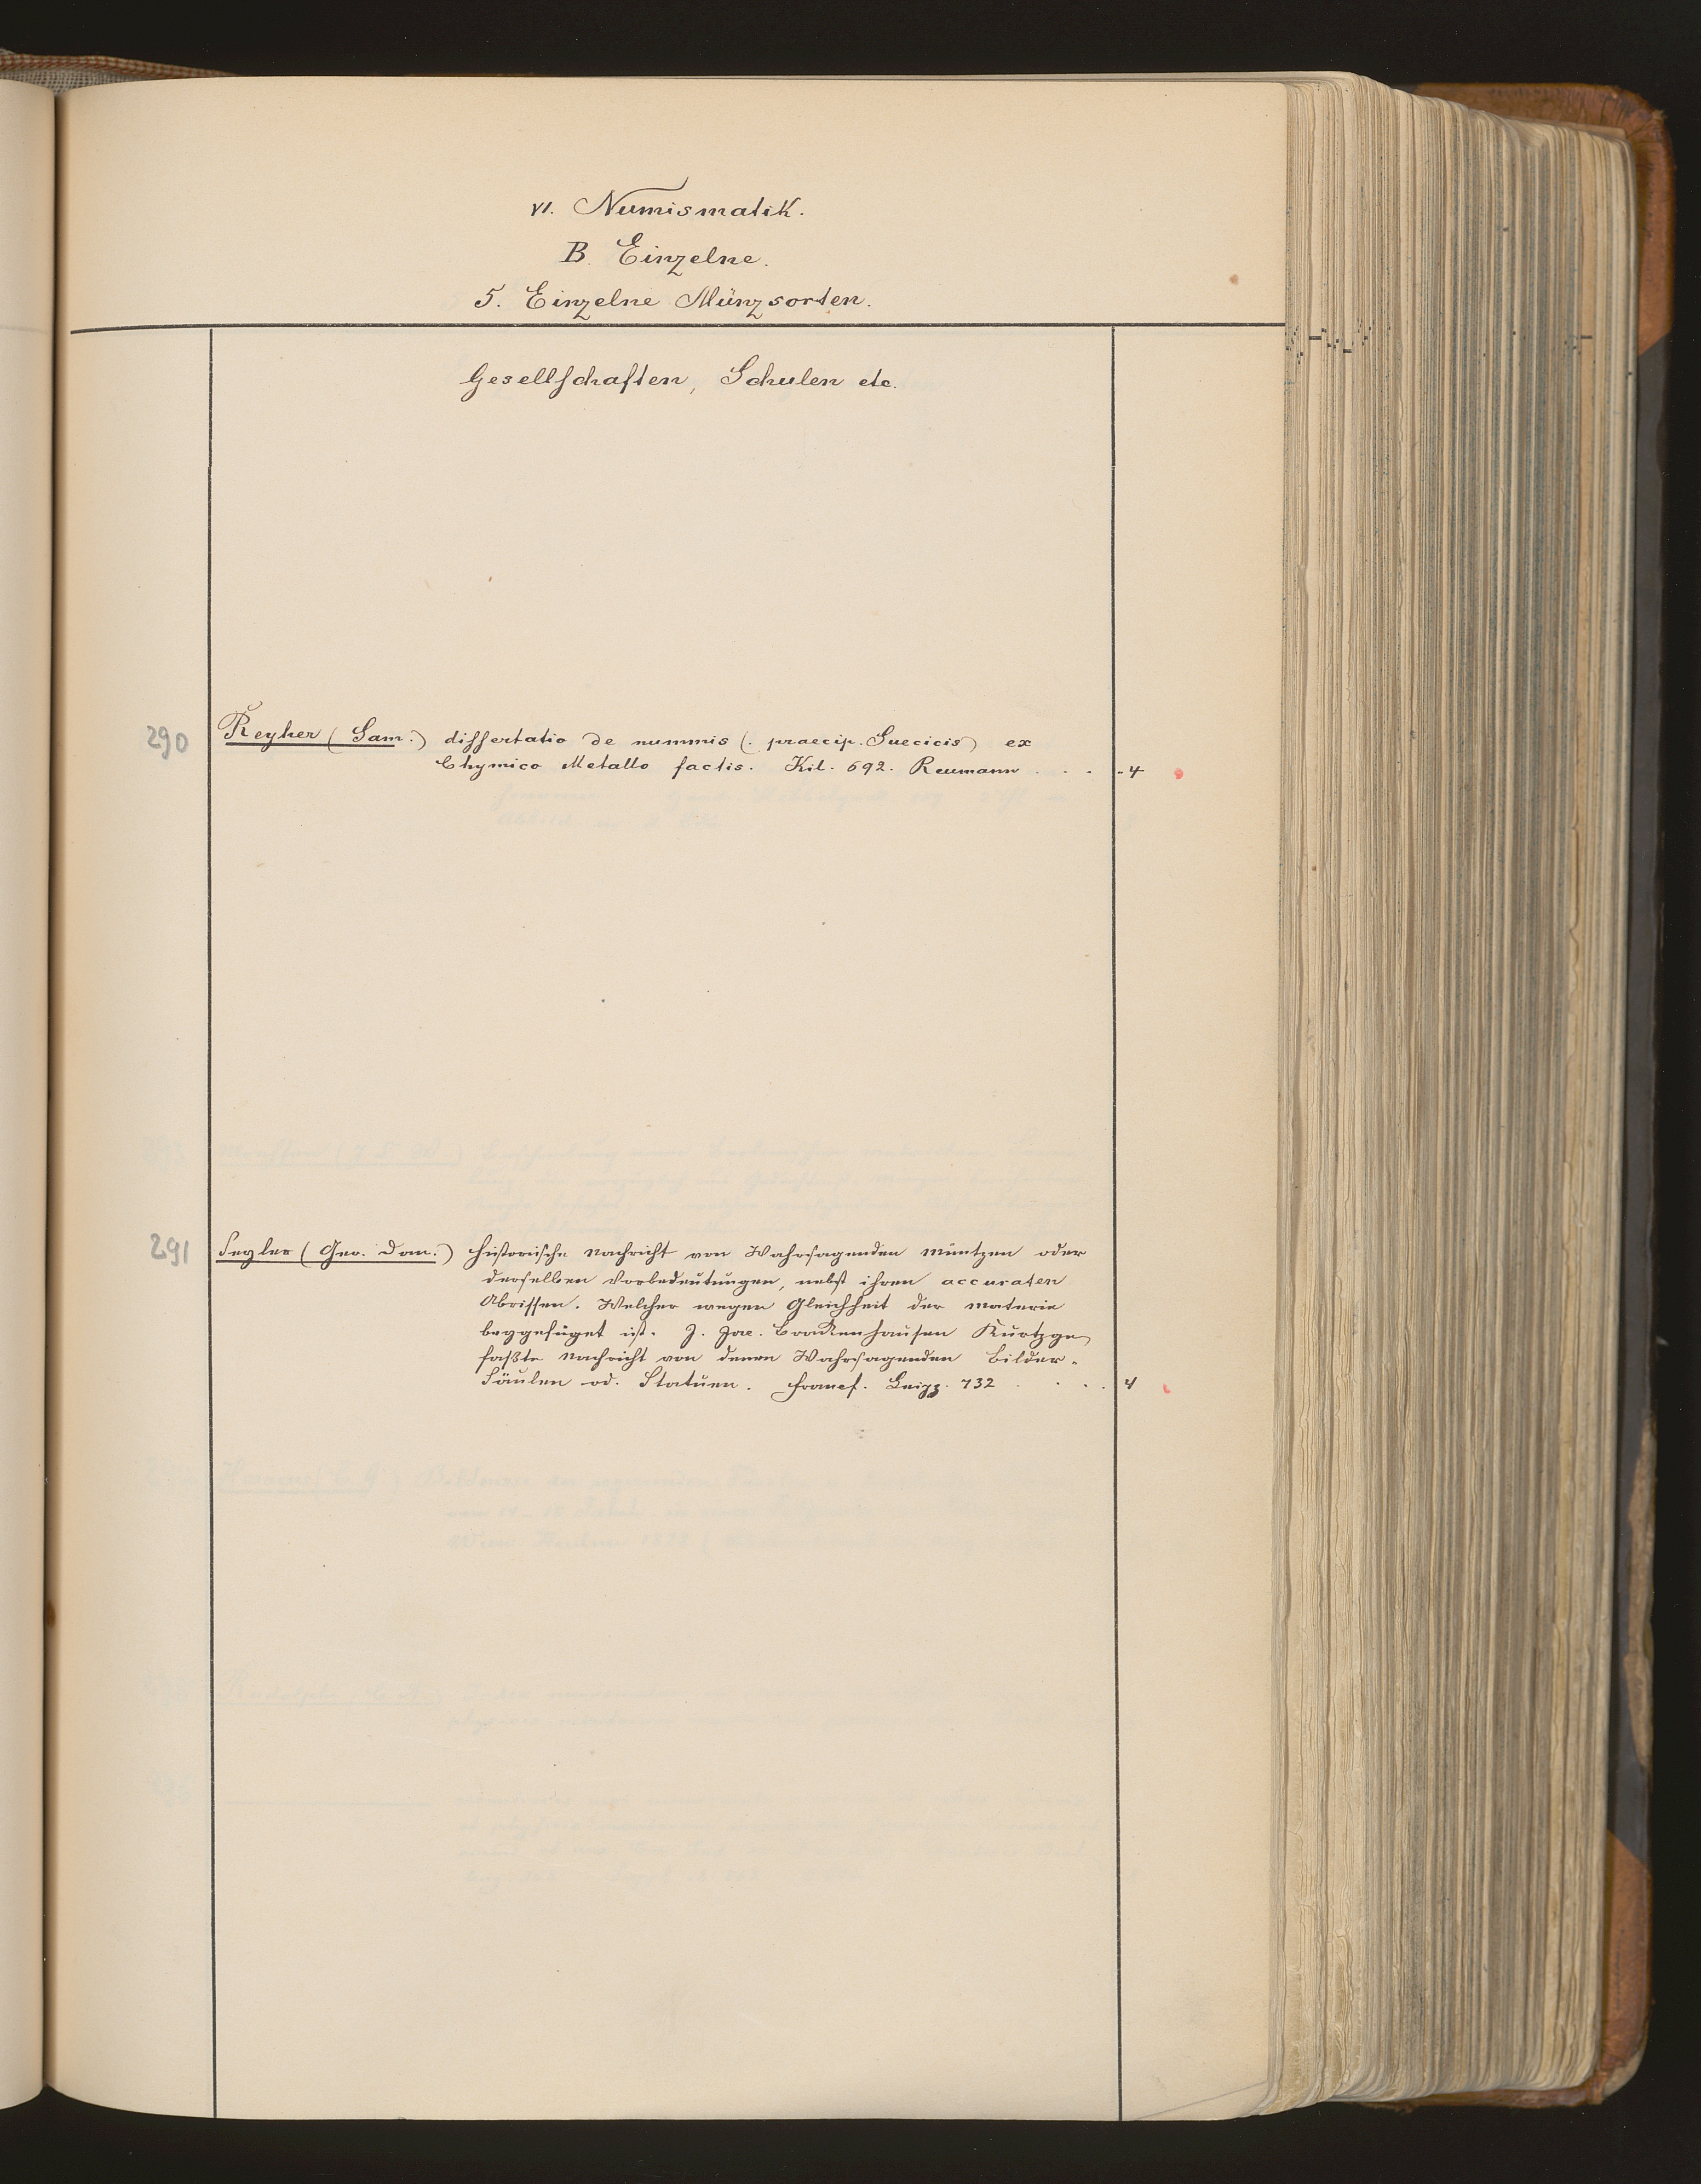 VI. Numismatik.
B. Einzelne.
5. Einzelne Münzsorten.
Gesellschaften, Schulen etc.
290 Reyher (Sam.) dissertatio de nummis (. praecip. Suecicis) ex
Chymico Metallo factis. Kil. 692. Reumann . . . 4
291 Seyler (Geo. Dan.) historische Nachricht von Wahrsagenden Müntzen oder
derselben Vorbedeutungen, nebst ihren accuraten
Abrissen. Welcher wegen Gleichheit der Materie
beygefüget ist. J. Jac. Brackenhausen Kurtzge
faßte Nachricht von denen Wahrsagenden Bilder-
Säulen od. Statuen. Francf. Leipz. 732 . . . . 4